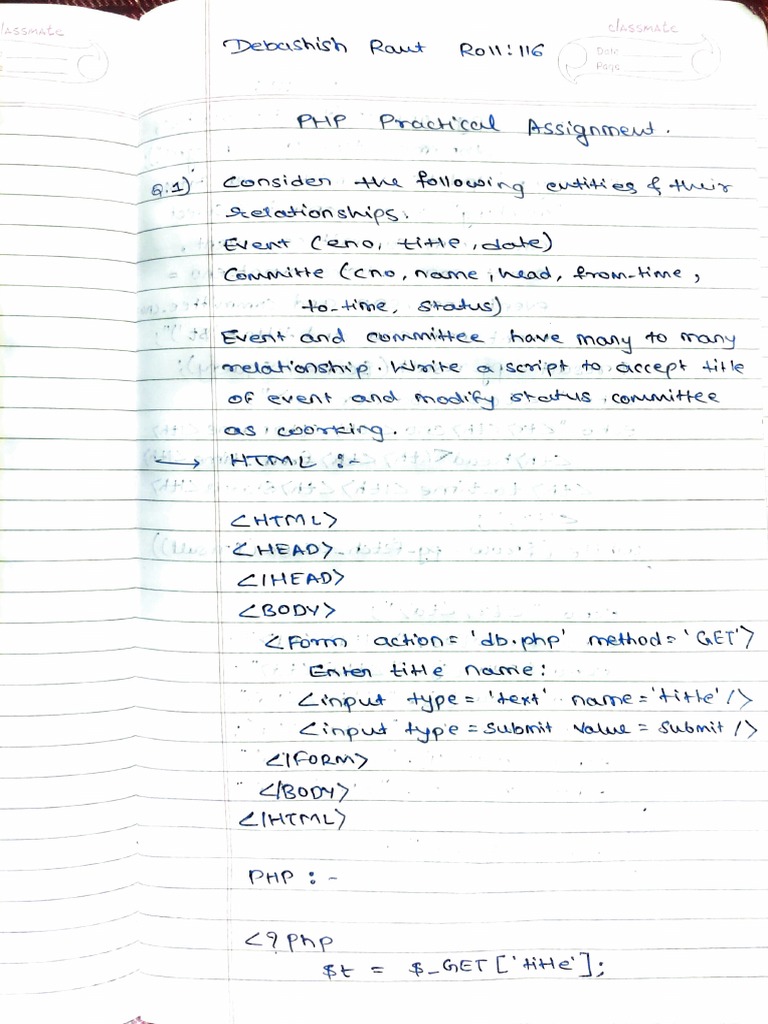 classmate
classmate
Date
Page
Debashish Raut Roll:116
PHP Practical Assignment.
Q.1) Consider the following entities & their
relationships.
Event (eno, title, date)
Committe (cno, name, head, from-time,
to-time, status)
Event and committee have many to many
relationship. Write a script to accept title
of event and modify status committee
as working.
→ HTML :-
<HTML>
<HEAD>
</HEAD>
<BODY>
<Form action = 'db.php' method = 'GET'>
Enter title name:
<input type = 'text' name = 'title' />
<input type = submit value = submit />
</FORM>
</BODY>
</HTML>
PHP :-
<?php
$t = $_GET ['title'];